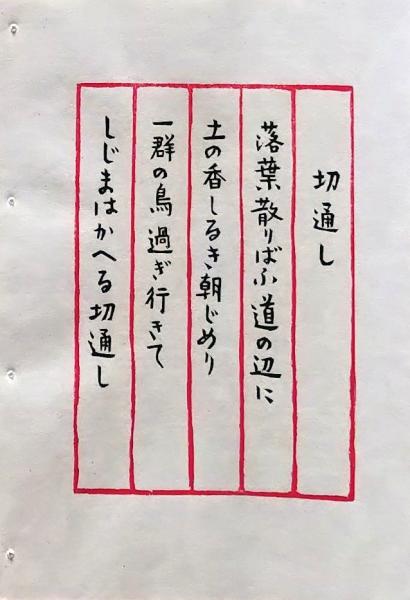 切通し
落葉散りばふ道の辺に
土の香しるき朝じめり
一群の鳥過ぎ行きて
しじまはかへる切通し